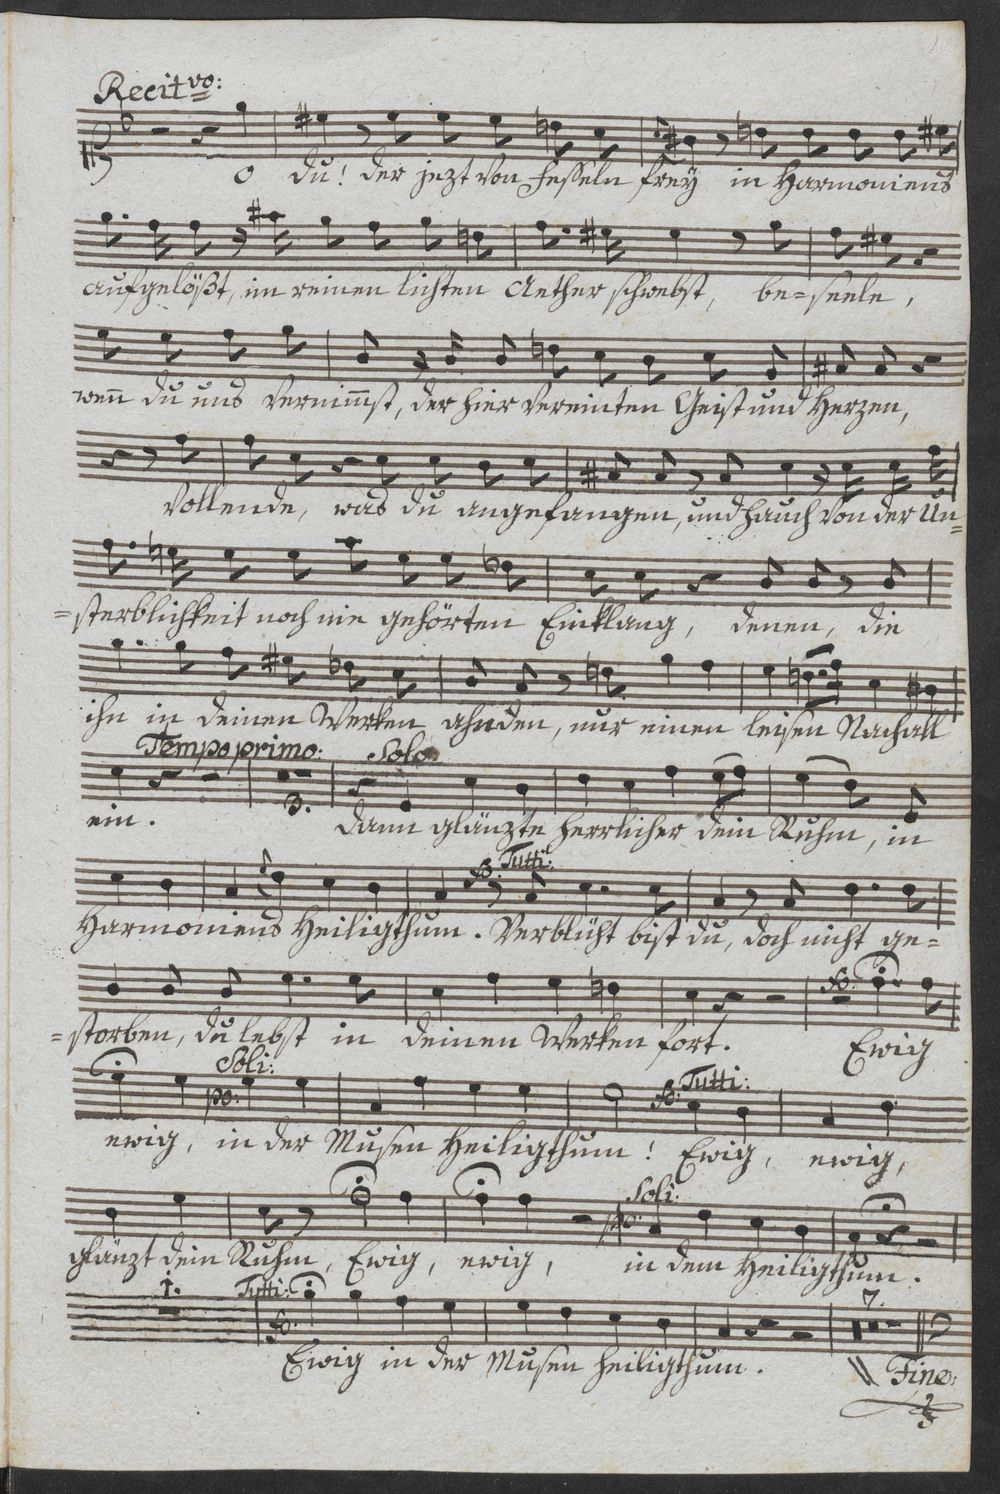 Recit vo:
O du! der jezt von Fesseln frey in Harmoniens
aufgelößt, im reinen lichten Aether schwebst, be=seele,
wen̅ du uns vernim̅st, der hier vereinten Geist und Herzen,
Vollende, was du angefangen, und hauch von der Un=
=sterblichkeit noch nie gehörten Einklang, denen, die
ihn in deinen Werken ahnden, nur einen leisen Nachall
Tempo primo: Solo
3.
ein. Dann glänzte herrlicher dein Ruhm, in
fo. Tutti:
Harmoniens Heiligthum. Verblüht bist du, doch nicht ge=
fo.
=storben, du lebst in deinen Werken fort. Ewig
Soli:
po. fo. Tutti:
ewig, in der Musen Heiligthum! Ewig, ewig,
Soli:
po.
glänzt dein Ruhm, Ewig, ewig, in dem Heiligthum.
1. Tutti: 7.
fo.
Ewig in der Musen heiligthum. Fine: